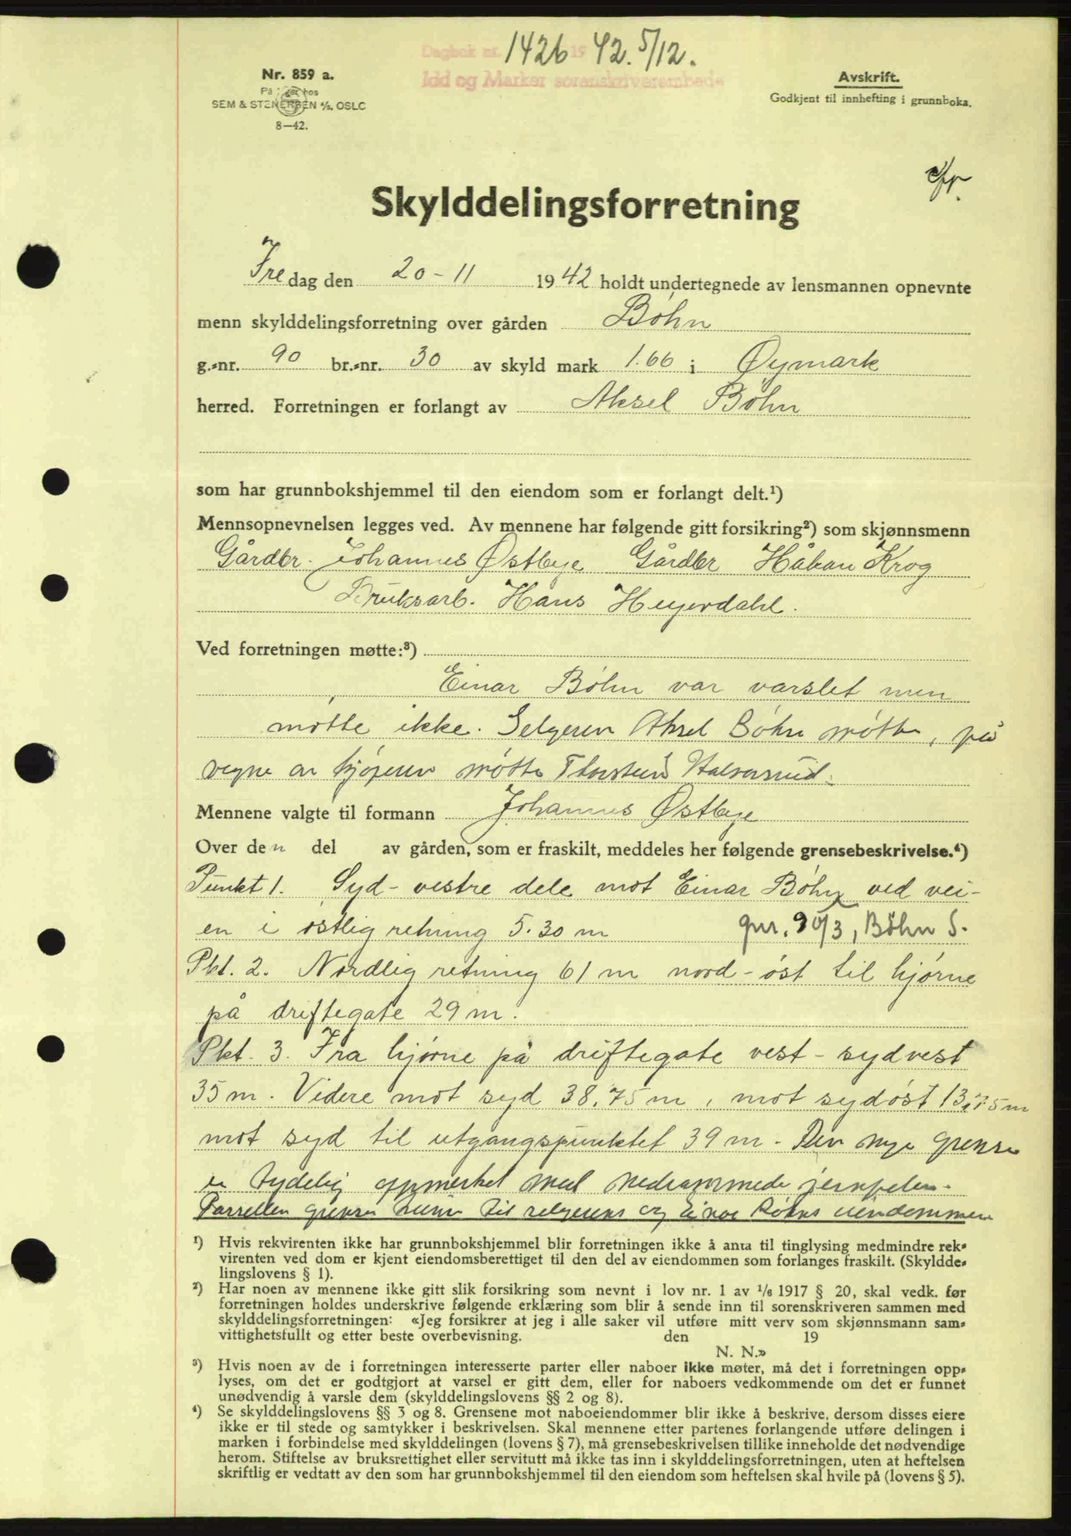 Dagbok nr. 1426 1942. 5/12.
Idd og Marker sorenskriverembede
Nr. 859 a.
SEM & STENERSEN A/S, OSLO
8—42.
Avskrift.
Godkjent til innhefting i grunnboka.
Skylddelingsforretning
Fredag den 20-11 1942 holdt undertegnede av lensmannen opnevnte
menn skylddelingsforretning over gården Bøhn
g.-nr. 90 br.-nr. 30 av skyld mark 1.66 i Øymark
herred. Forretningen er forlangt av Aksel Bøhn
som har grunnbokshjemmel til den eiendom som er forlangt delt.¹)
Mennsopnevnelsen legges ved. Av mennene har følgende gitt forsikring²) som skjønnsmenn
Gårdbr. Johannes Østbye Gårdbr Håkan Krog
Bruksarb. Hans Heyerdahl.
Ved forretningen møtte:³)
Einar Bøhn var varslet men
møtte ikke. Selgeren Aksel Bøhn møtte, på
vegne av kjøperen møtte Thorstein Halvorsrud.
Mennene valgte til formann Johannes Østbye
Over den del av gården, som er fraskilt, meddeles her følgende grensebeskrivelse.⁴)
Punkt 1. Syd-vestre dele mot Einar Bøhn ved vei-
en i østlig retning 5.30 m gnr. 90/3, Bøhn S.
Pkt. 2. Nordlig retning 61 m nord-øst til hjørne
på driftegate 29 m.
Pkt. 3. Fra hjørne på driftegate vest-sydvest
35 m. Videre mot syd 38.75 m, mot sydøst 13,75 m
mot syd til utgangspunktet 39 m. Den nye grense
er tydelig oppmerket med nedrammede jernpeler.
Parsellen grenser kun til selgerens og Einar Bøhns eiendommer
¹) Hvis rekvirenten ikke har grunnbokshjemmel blir forretningen ikke å anta til tinglysing medmindre rek-
virenten ved dom er kjent eiendomsberettiget til den del av eiendommen som forlanges fraskilt. (Skyldde-
lingslovens § 1).
²) Har noen av mennene ikke gitt slik forsikring som nevnt i lov nr. 1 av 1/6 1917 § 20, skal vedk. før
forretningen holdes underskrive følgende erklæring som blir å sende inn til sorenskriveren sammen med
skylddelingsforretningen: «Jeg forsikrer at jeg i alle saker vil utføre mitt verv som skjønnsmann sam-
vittighetsfullt og etter beste overbevisning. den 19
N. N.»
³) Hvis noen av de i forretningen interesserte parter eller naboer ikke møter, må det i forretningen opp-
lyses, om det er godtgjort at varsel er gitt dem, eller for naboers vedkommende om det er funnet
unødvendig å varsle dem (skylddelingslovens §§ 2 og 8).
⁴) Se skylddelingslovens §§ 3 og 8. Grensene mot naboeiendommer blir ikke å beskrive, dersom disses eiere
ikke er til stede og samtykker i beskrivelsen. Skal mennene etter partenes forlangende utføre delingen i
marken i forbindelse med skylddelingen (lovens § 7), må grensebeskrivelsen tillike inneholde det nødvendige
herom. Stiftelse av bruksrettighet eller servitutt må ikke tas inn i skylddelingsforretningen, uten at heftelsen
skriftlig er vedtatt av den som har grunnbokshjemmel til den eiendom som heftelsen skal hvile på (lovens § 5).